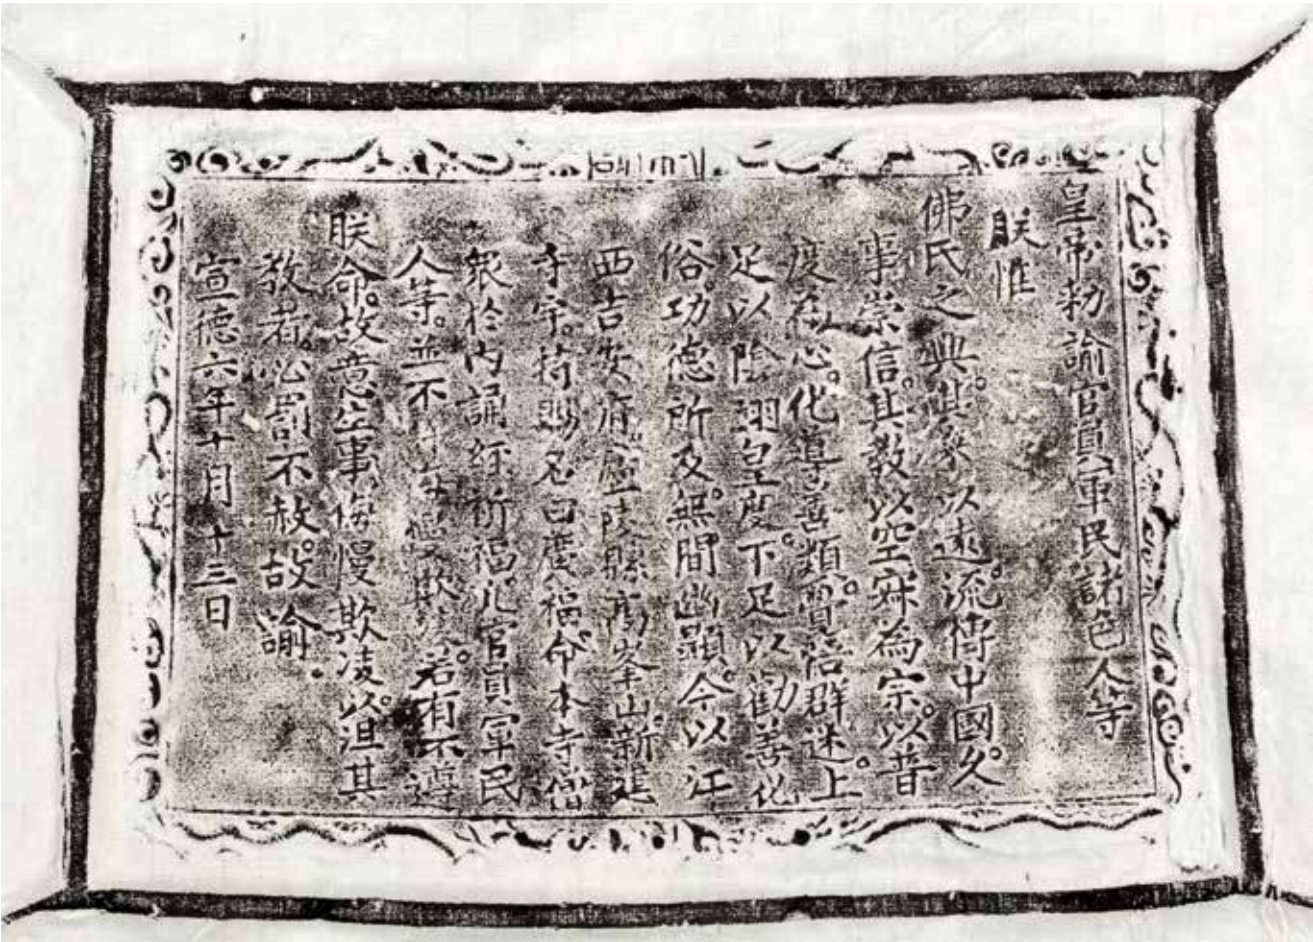 皇帝勑諭官員軍民諸色人等
朕惟
佛氏之興。其來以遠。流傳中國。久
事崇信。其教以空寂為宗。以普
度為心。化導善類。覺悟群迷。上
足以陰翊皇度。下足以勸善化
俗。功德所及。無間幽顯。今以江
西吉安府廬陵縣高峯山。新建
寺宇。特賜名曰福。命本寺僧
衆於內誦經祈福。凡官員軍民
人等。並不許侮慢欺凌。若有不遵
朕命。故意生事。侮慢欺凌。以沮其
教者。必罰不赦。故諭
宣德六年十月十三日